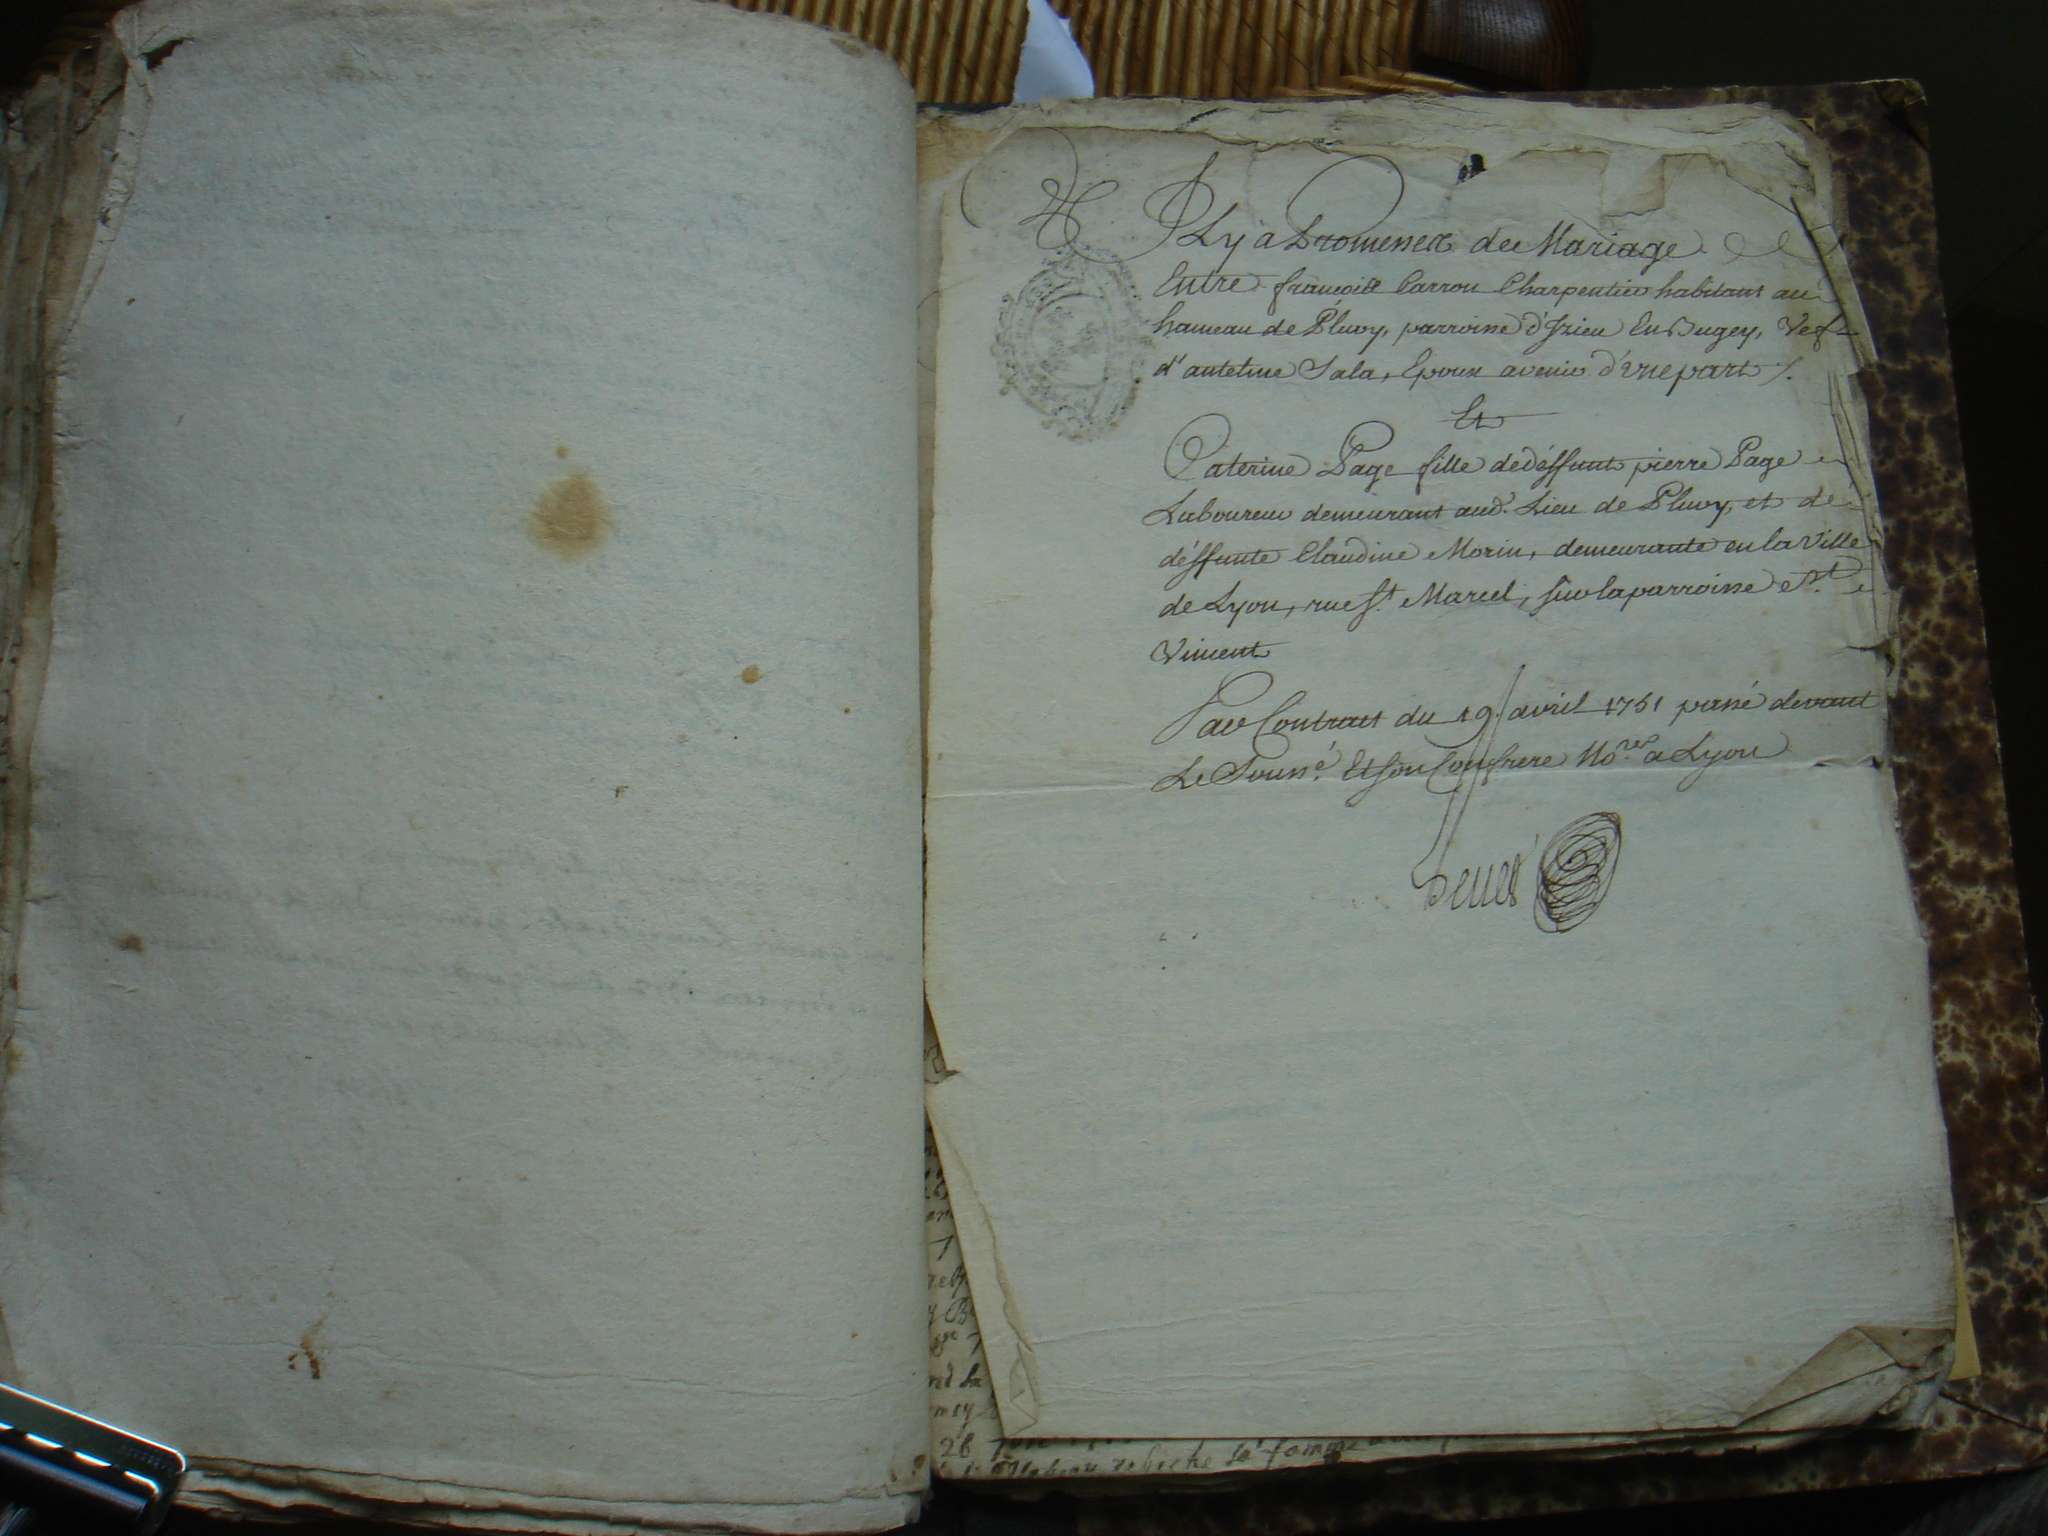 Il y a Promesses de Mariage
Entre françois Carrou Charpentier habitant au
hameau de Pluvy, parroisse d'Izieu En Bugey, Vef
d'antelme Sala, Epoux avenir d'une part /.
Et
Caterine Page fille de déffunt pierre Page
Laboureur demeurant aud. Lieu de Pluvy, et de
déffunte Claudine Morin, demeurante en la Ville
de Lyon, rue St. Marcel, sur la parroisse St.
Vincent
Par Contrat du 19 avril 1751 passé devant
Le Soussé. Et son Confrere Nores a Lyon
sa femme